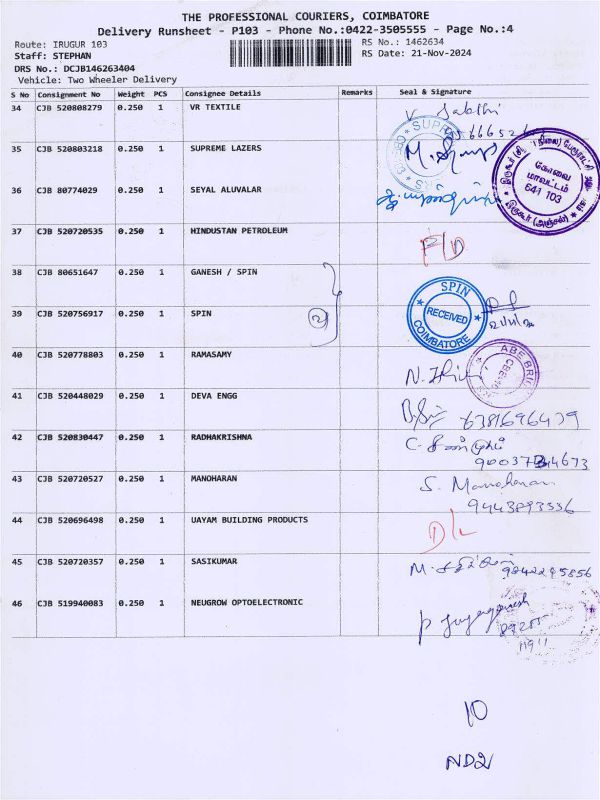 THE PROFESSIONAL COURIERS, COIMBATORE
Delivery Runsheet - P103 - Phone No.:0422-3505555 - Page No.:4
Route: IRUGUR 103
RS No.: 1462634
Staff: STEPHAN
RS Date: 21-Nov-2024
DRS No.: DCJB146263404
Vehicle: Two Wheeler Delivery
S No Consignment No Weight PCS Consignee Details Remarks Seal & Signature
34 CJB 520808279 0.250 1 VR TEXTILE
35 CJB 520803218 0.250 1 SUPREME LAZERS
36 CJB 80774029 0.250 1 SEYAL ALUVALAR
கோவை
மாவட்டம்
641 103
37 CJB 520720535 0.250 1 HINDUSTAN PETROLEUM
38 CJB 80651647 0.250 1 GANESH / SPIN
39 CJB 520756917 0.250 1 SPIN
SPIN
RECEIVED
COIMBATORE
40 CJB 520778803 0.250 1 RAMASAMY
41 CJB 520448029 0.250 1 DEVA ENGG
6381696439
42 CJB 520830447 0.250 1 RADHAKRISHNA
43 CJB 520720527 0.250 1 MANOHARAN S. Manoharan
9443893336
44 CJB 520696498 0.250 1 UAYAM BUILDING PRODUCTS D/L
45 CJB 520720357 0.250 1 SASIKUMAR
9842295856
46 CJB 519940083 0.250 1 NEUGROW OPTOELECTRONIC
10
ND2